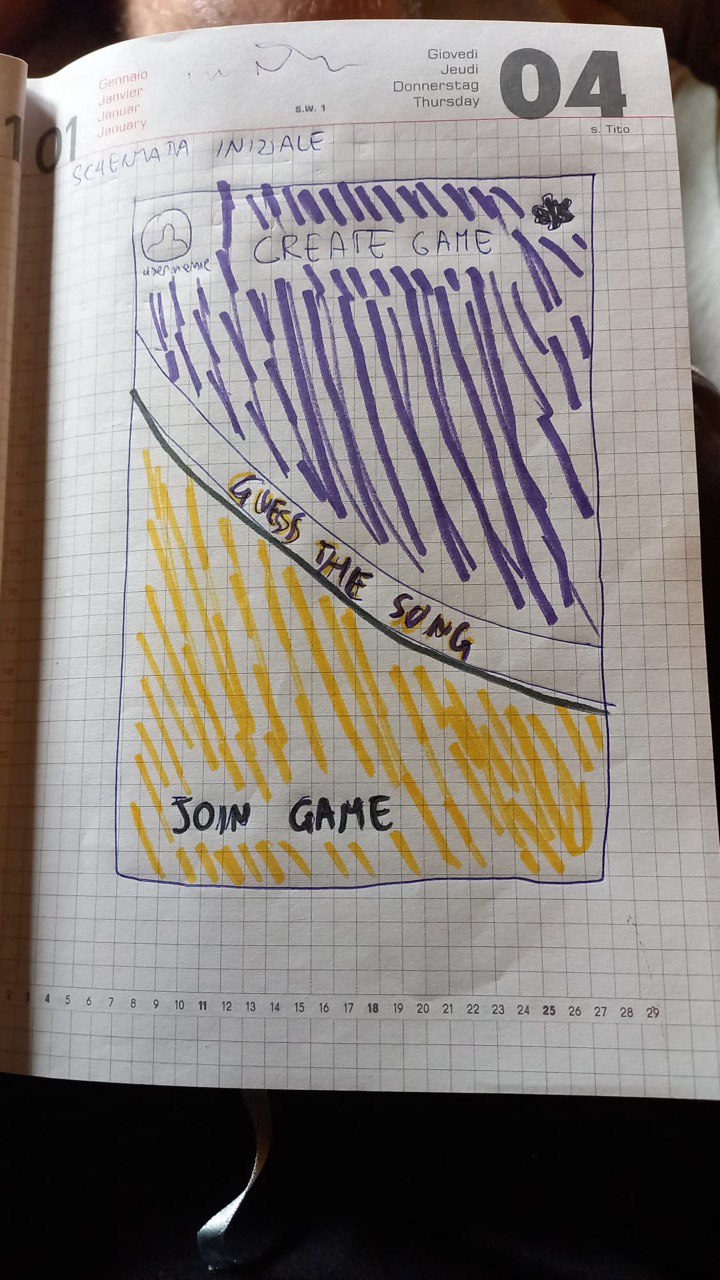 Gennaio
Janvier
Januar
January
s.w. 1
Giovedì
Jeudi
Donnerstag
Thursday
04
s. Tito
01
SCHERMATA INIZIALE
username
CREATE GAME
GUESS THE SONG
JOIN GAME
2 3 4 5 6 7 8 9 10 11 12 13 14 15 16 17 18 19 20 21 22 23 24 25 26 27 28 29